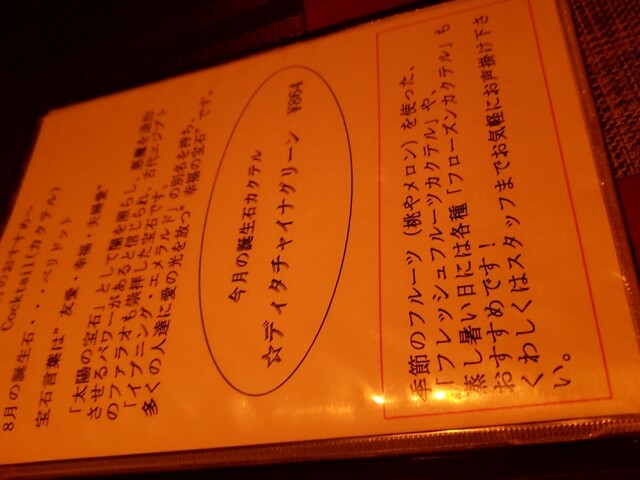 のおすすめ～
Cocktail(カクテル)
8月の誕生石・・・ペリドット
宝石言葉は" 友愛・幸福・夫婦愛"
「太陽の宝石」として闇を照らし、悪魔を退散
させるパワーがあると信じられ、古代エジプト
のファラオも崇拝した宝石です。
「イブニング・エメラルド」の別名を持ち、
多くの人達に愛の光を放つ"幸福の宝石"です。
今月の誕生石カクテル
☆ディタチャイナグリーン ¥864
季節のフルーツ（桃やメロン）を使った、
「フレッシュフルーツカクテル」や、
蒸し暑い日には各種「フローズンカクテル」も
おすすめです！
くわしくはスタッフまでお気軽にお声掛け下さ
い。